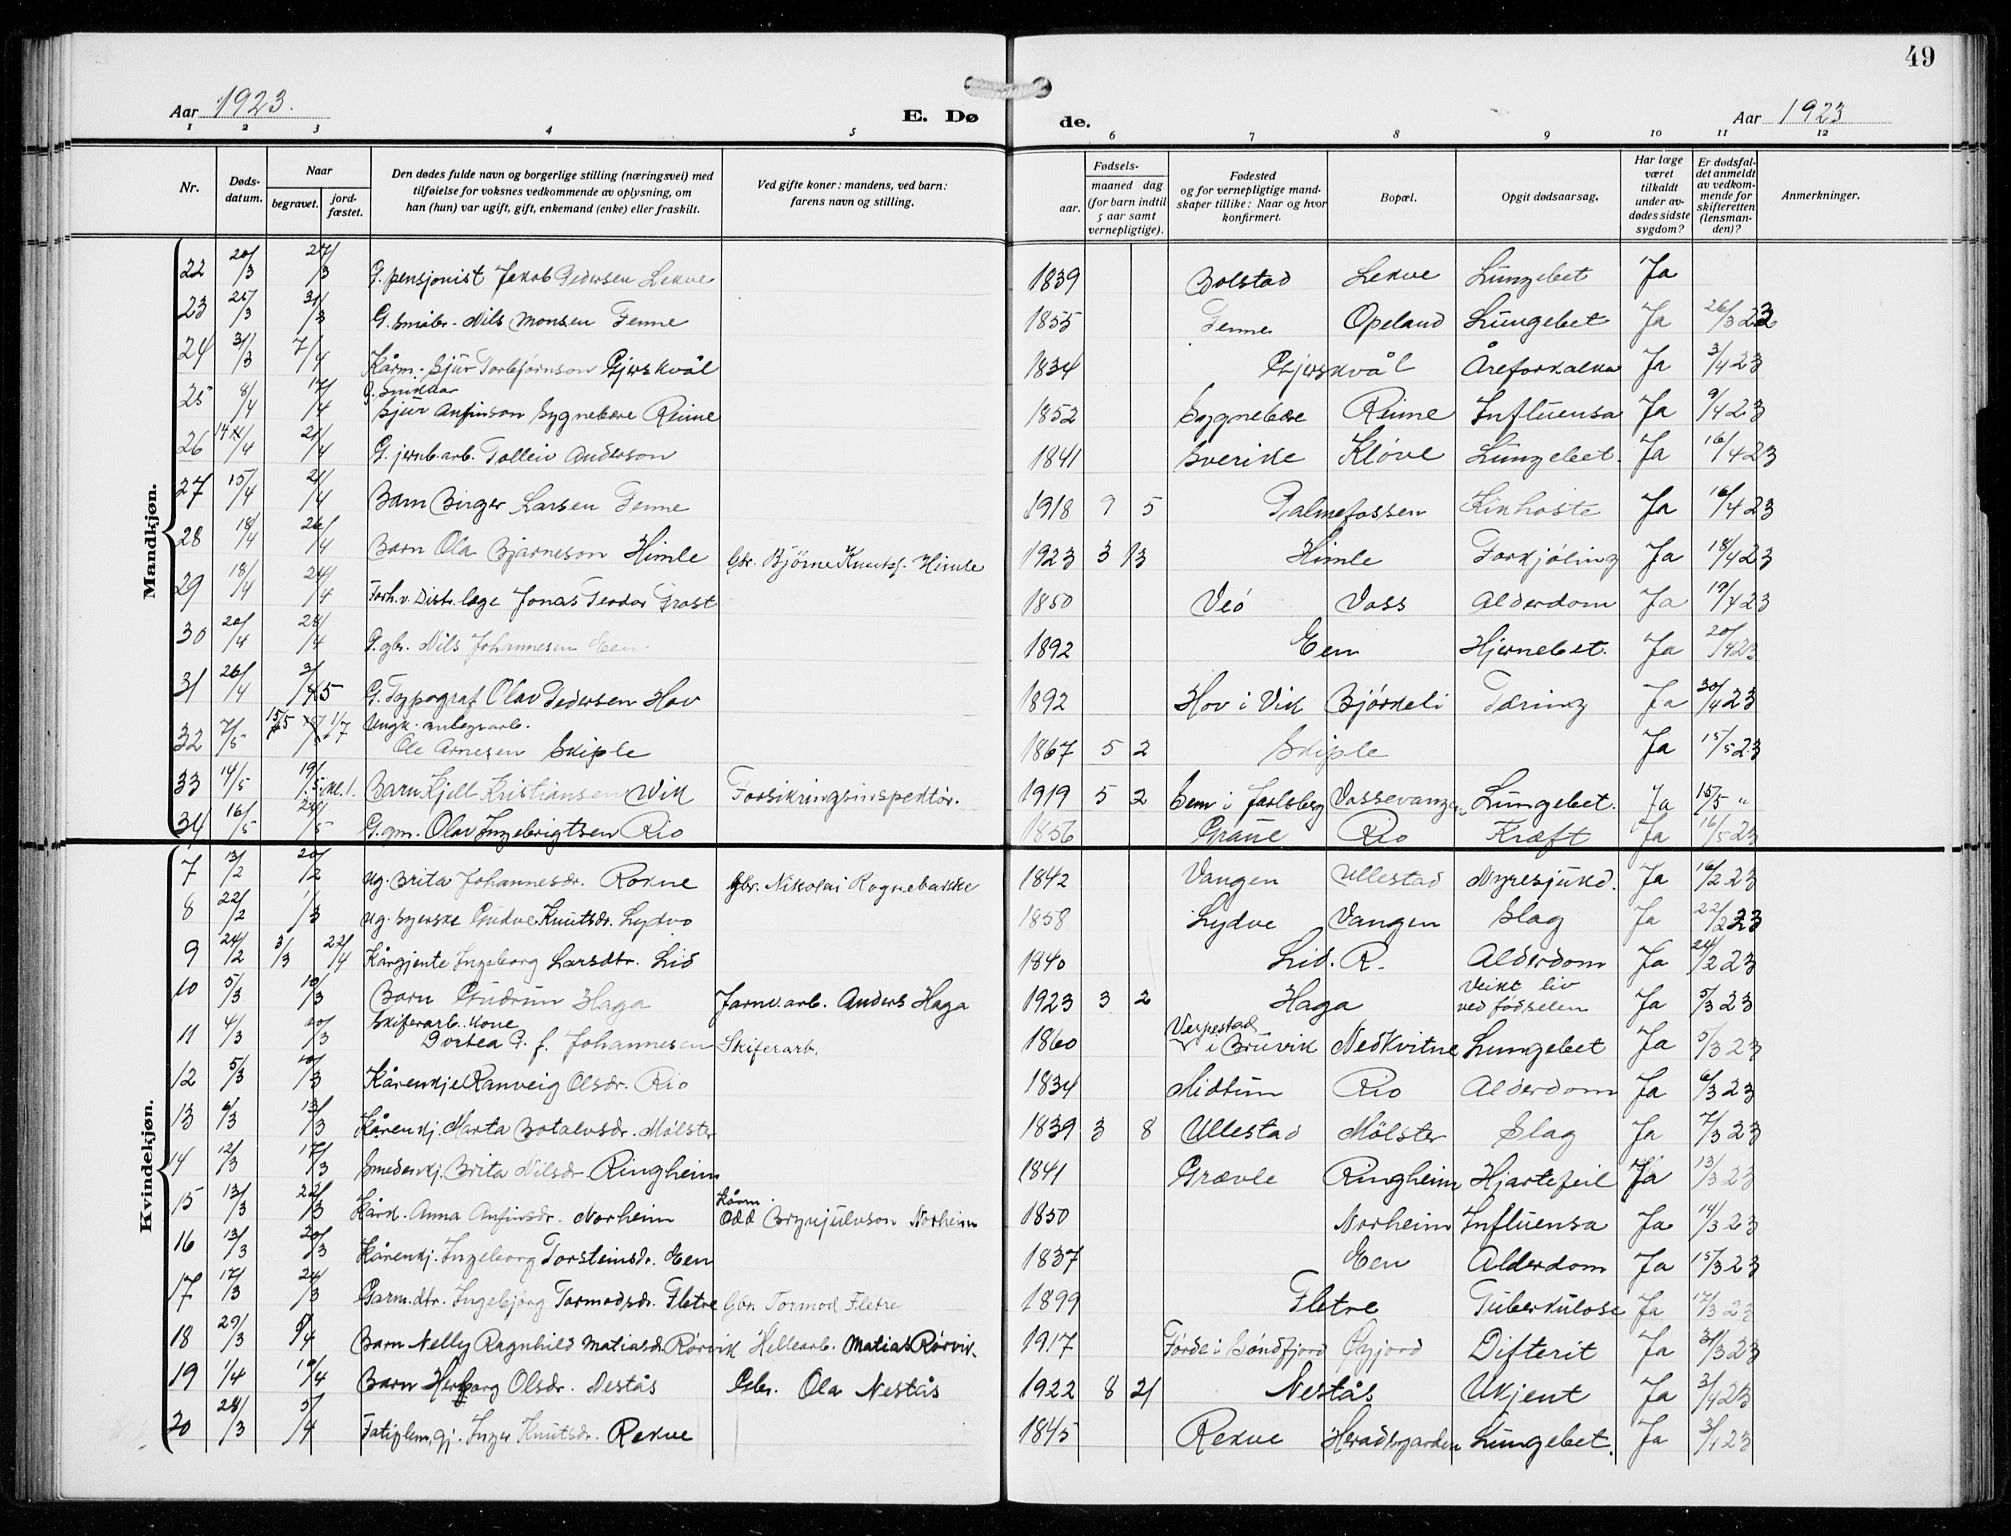 49
Aar 1923. E. Dø de. Aar 1923
1 2 3 4 5 6 7 8 9 10 11 12
Nr. Døds-datum. Naar begravet. jord-fæstet. Den dødes fulde navn og borgerlige stilling (næringsvei) med tilføielse for voksnes vedkommende av oplysning, om han (hun) var ugift, gift, enkemand (enke) eller fraskilt. Ved gifte koner: mandens, ved barn: farens navn og stilling. Fødsels- aar. maaned dag (for barn indtil 5 aar samt vernepligtige). Fødested og for vernepligtige mand-skaper tillike: Naar og hvor konfirmert. Bopæl. Opgit dødsaarsag. Har læge været tilkaldt under av-dødes sidste sygdom? Er dødsfal-det anmeldt av vedkom-mende for skifteretten (lensman-den)? Anmerkninger.
Mandkjøn.
22 20/3 27/3 G. pensjonist Jakob Pedersen Lekve 1839 Bolstad Lekve Lungebet Ja
23 25/3 31/3 G. småbr. Nils Monsen Tenne 1855 Tenne Opeland Lungebet Ja 26/3 23
24 31/3 7/4 Kårm. Sjur Torbjørnson Gjerskvål 1834 Gjerskvål Åreforkalkn Ja 3/4 23
25 8/4 17/4 G. Snikkar
Sjur Anfinson Sygnebere Reime 1852 Sygnebere Reime Influensa Ja 9/4 23
26 14/4 21/4 G. jernb.arb. Tolleiv Anderson 1841 Sverike Kløve Lungebet. Ja 16/4 23
27 15/4 21/4 Barn Birger Larsen Tenne 1918 9 5 Palmefossen Kikhoste Ja 16/4 23
28 18/4 26/4 Barn Ola Bjarneson Himle Gbr. Bjørne Knuts. Himle 1923 3 13 Himle Forkjøling Ja 18/4 23
29 18/4 24/4 Forh.v. Distr. læge Jonas Teodor Grost 1850 Veö Voss Alderdom Ja 19/4 23
30 20/4 28/4 G. gbr. Nils Johannesen Een 1892 Een Hjernebet. Ja 20/4 23
31 26/4 3/5 G. Typograf Olav Pedersen Hov 1892 Hov i Vik Bjørkeli Tæring Ja 30/4 23
32 7/5 15/5 1/7 Ungk. anlegsarb.
Ole Arnesen Skiple 1867 5 2 Skiple Ja 15/5 23
33 14/5 19/5 kl. 1. Barn Kjell Kristiansen Vik Forsikringsinspektör. 1919 5 2 Sem i Jarlsberg Vossevangen Lungebet. Ja 15/5 "
34 16/5 24/5 G. gm. Olav Ingebrigtsen Rio 1856 Graue Rio Kræft Ja 16/5 23
Kvindekjøn.
7 13/2 20/2 Ug. Brita Johannesdr. Rokne Gbr. Nikolai Rognebakke 1842 Vangen Ullestad Nyresjukd. Ja 16/2 23
8 22/2 1/3 Ug. Syerske Gudve Knutsdr. Lydvo 1858 Lydve Vangen Slag Ja 22/2 23
9 24/2 3/3 22/4 Kårgjente Ingeborg Larsdtr. Lid 1840 Lid. R. Alderdom Ja 24/2 23
10 5/3 10/3 Barn Gudrun Haga Jarnv.arb. Anders Haga 1923 3 2 Haga Veikt liv ved födselen Ja 5/3 23
11 4/3 20/3 Skiferarb. kone
Dortea P. f. Johannesen Skiferarb. 1860 Verpestad i Bruvik Nedkvitne Lungebet Ja 5/3 23
12 5/3 10/3 Kårenkje Ranveig Olsdr. Rio 1834 Midtun Rio Alderdom Ja 6/3 23
13 6/3 13/3 Kårenkj. Marta Botalvsdr. Mölster 1839 3 8 Ullestad Mölster Slag Ja 7/3 23
14 12/3 17/3 Smedenkj. Brita Nilsdr Ringheim 1841 Grævle Ringheim Hjartefeil Ja 13/3 23
15 13/3 22/3 Kårk. Anna Anfinsdr. Norheim Kårm. Odd Brynjulvson Norheim 1850 Norheim Influensa Ja 14/3 23
16 13/3 20/3 Kårenkj. Ingeborg Torsteinsdr. Een 1837 Een Alderdom Ja 15/3 23
17 17/3 24/3 Garm.dtr. Ingebjörg Tormodsdr. Fletre Gbr. Tormod Fletre 1899 Fletre Tuberkulose Ja 17/3 23
18 29/3 5/4 Barn Nelly Ragnhild Matiasdr Rörvik Hellearb. Matias Rörvik. 1917 Förde i Söndfjord Gjord Difterit Ja 31/3 23
19 1/4 10/4 Barn Herborg Olsdr. Nestås Gbr. Ola Nestås 1922 8 21 Nestås Ukjent Ja 3/4 23
20 28/3 5/4 Fatiglem, gj. Inger Knutsdr. Rekve 1845 Rekve Heradsgarden Lungebet. Ja 3/4 23